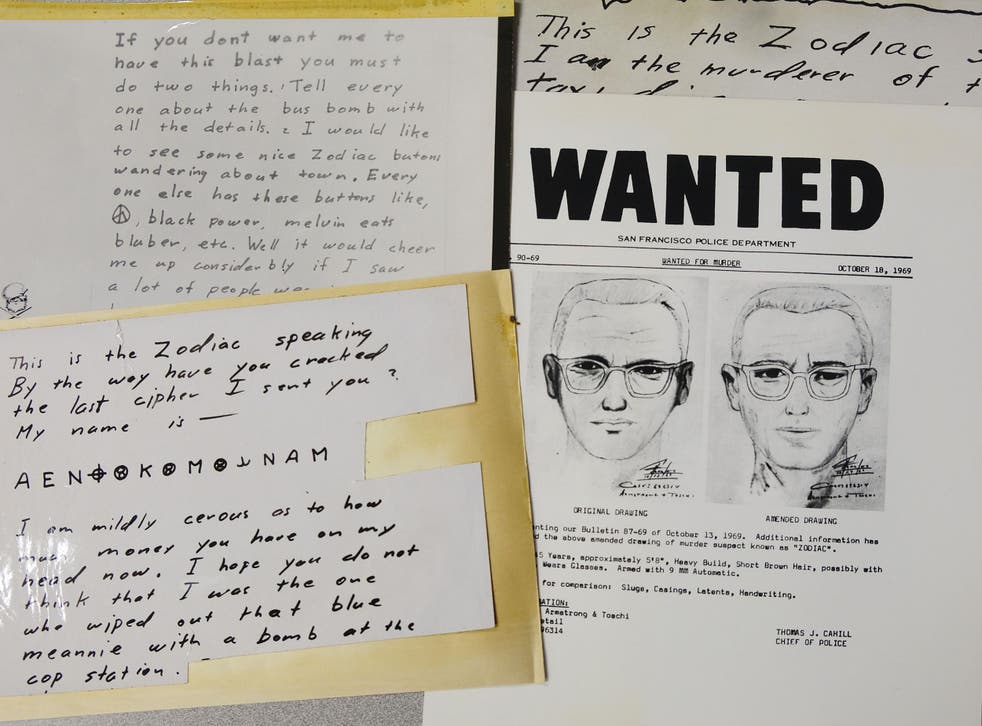 If you dont want me to
have this blast you must
do two things. Tell every
one about the bus bomb with
all the details. 2 I would like
to see some nice Zodiac butons
wandering about town. Every
one else has these buttons like,
☮, black power, melvin eats
bluber, etc. Well it would cheer
me up considerbly if I saw
a lot of people
This is the Zodiac
I am the murderer of
WANTED
SAN FRANCISCO POLICE DEPARTMENT
90-69 WANTED FOR MURDER OCTOBER 18, 1969
ORIGINAL DRAWING AMENDED DRAWING
nting our Bulletin 87-69 of October 13, 1969. Additional information has
the above amended drawing of murder suspect known as "ZODIAC".
5 Years, approximately 5'8", Heavy Build, Short Brown Hair, possibly with
Wears Glasses. Armed with 9 MM Automatic.
for comparison: Slugs, Casings, Latents, Handwriting.
ATION:
Armstrong & Toschi
etail
96314
THOMAS J. CAHILL
CHIEF OF POLICE
This is the Zodiac speaking
By the way have you cracked
the last cipher I sent you ?
My name is —
A E N ⌖ ⊗ K ⊗ M ⊗ ⅃ N A M
I am mildly cerous as to how
much money you have on my
head now. I hope you do not
think that I was the one
who wiped out that blue
meannie with a bomb at the
cop station.